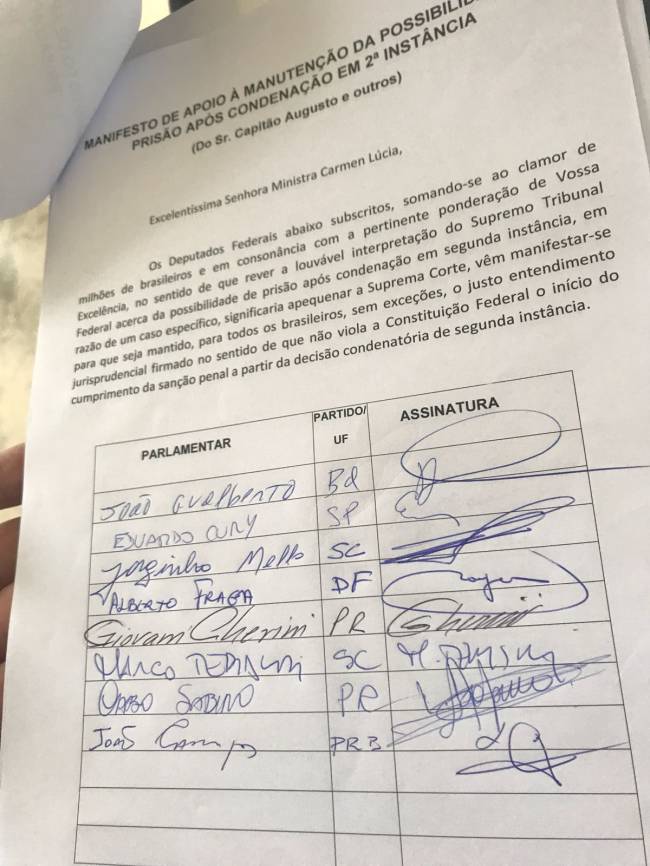 MANIFESTO DE APOIO À MANUTENÇÃO DA POSSIBILID
PRISÃO APÓS CONDENAÇÃO EM 2ª INSTÂNCIA
(Do Sr. Capitão Augusto e outros)
Excelentíssima Senhora Ministra Carmen Lúcia,
Os Deputados Federais abaixo subscritos, somando-se ao clamor de
milhões de brasileiros e em consonância com a pertinente ponderação de Vossa
Excelência, no sentido de que rever a louvável interpretação do Supremo Tribunal
Federal acerca da possibilidade de prisão após condenação em segunda instância, em
razão de um caso específico, significaria apequenar a Suprema Corte, vêm manifestar-se
para que seja mantido, para todos os brasileiros, sem exceções, o justo entendimento
jurisprudencial firmado no sentido de que não viola a Constituição Federal o início do
cumprimento da sanção penal a partir da decisão condenatória de segunda instância.
PARLAMENTAR PARTIDO/ UF ASSINATURA
João Gualberto Ba
EDUARDO CURY SP
Jorginho Mello SC
ALBERTO FRAGA DF
Giovani Cherini PR
MARCO SC
SABINO PR
João Campos PRB